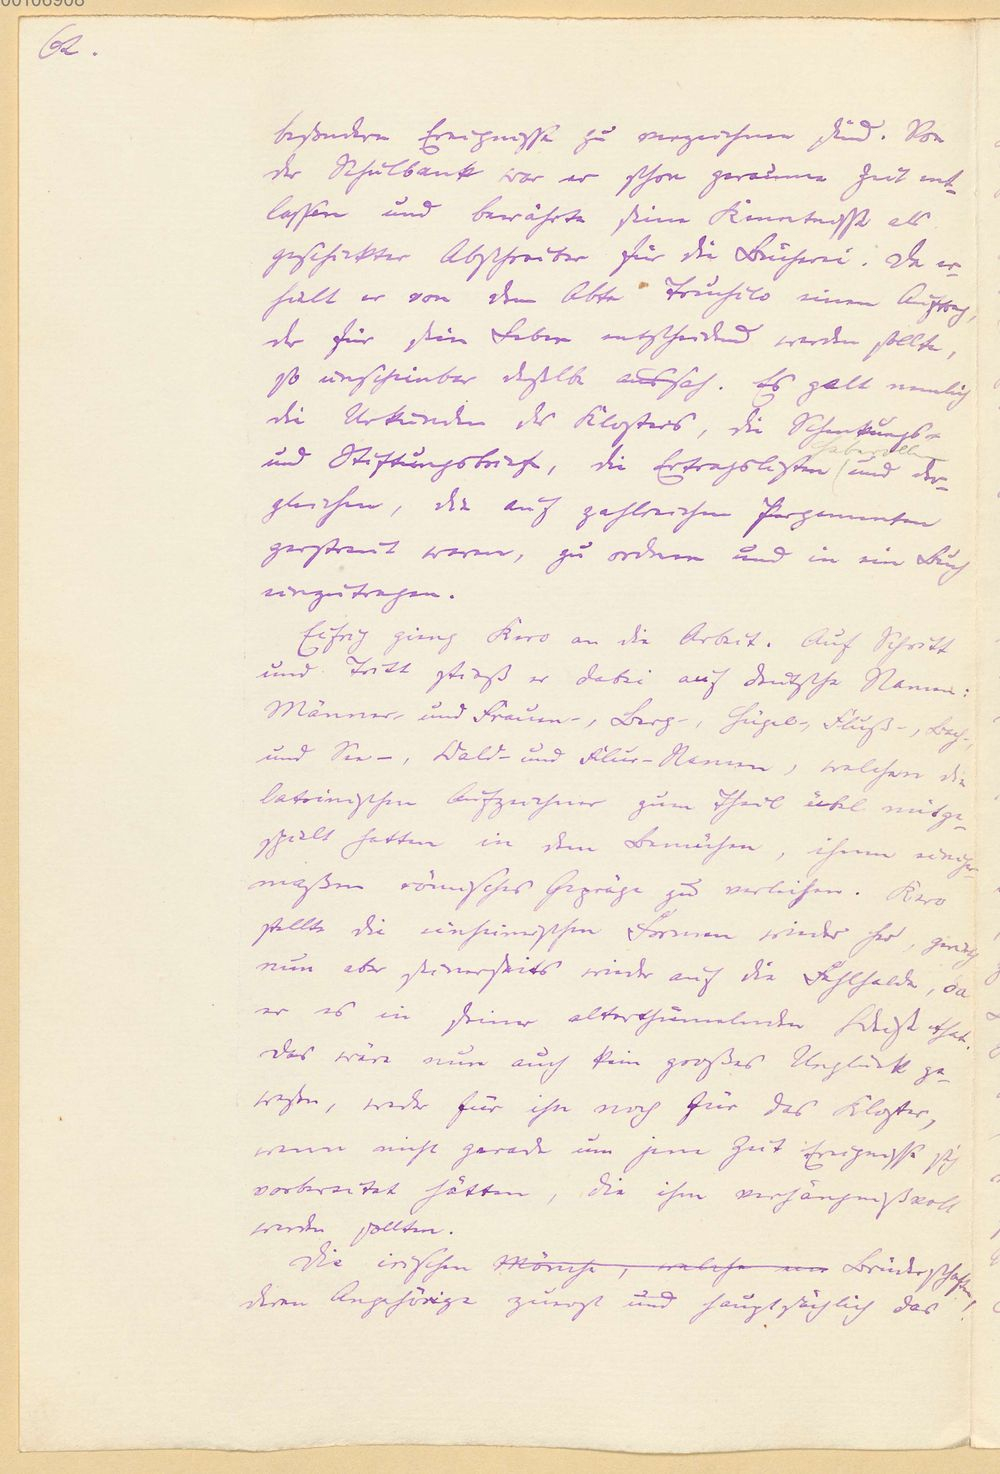 00106908
62.
besondern Ereignisse zu verzeichnen sind. Von
der Schulbank war er schon geraume Zeit ent-
lassen und bewährte seine Kenntnisse als
geschickter Abschreiber für die Bücherei. Da er-
hielt er von dem Abte Truchilo einen Auftrag,
der für sein Leben entscheidend werden sollte,
so unscheinbar derselbe aussah. Es galt nemlich
die Urkunden des Klosters, die Schenkungs-
und Stiftungsbriefe, die Ertragslisten (und der-
gleichen, die auf zahlreichen Pergamenten
zerstreut waren, zu ordnen und in ein Buch
einzutragen.
Eifrig gieng Kero an die Arbeit. Auf Schritt
und Tritt stieß er dabei auf deutsche Namen:
Männer- und Frauen-, Berg-, Hügel-, Fluß-, Bach-,
und See-, Wald- und Flur-Namen, welchen die
lateinischen Aufzeichner zum Theil übel mitge-
spielt hatten in dem Bemühen, ihnen einiger-
maßen römisches Gepräge zu verleihen. Kero
stellte die einheimischen Formen wieder her, gerieth
nun aber seinerseits wieder auf die Fehlhalde, da
er es in seiner alterthümelnden Weise that.
Das wäre nun auch kein großes Unglück ge-
wesen, weder für ihn noch für das Kloster,
wenn nicht gerade um jene Zeit Ereignisse sich
vorbereitet hätten, die ihm verhängnißvoll
werden sollten.
Die irischen Mönche, welche nun Brüderschaften,
deren Angehörige zuerst und hauptsächlich das